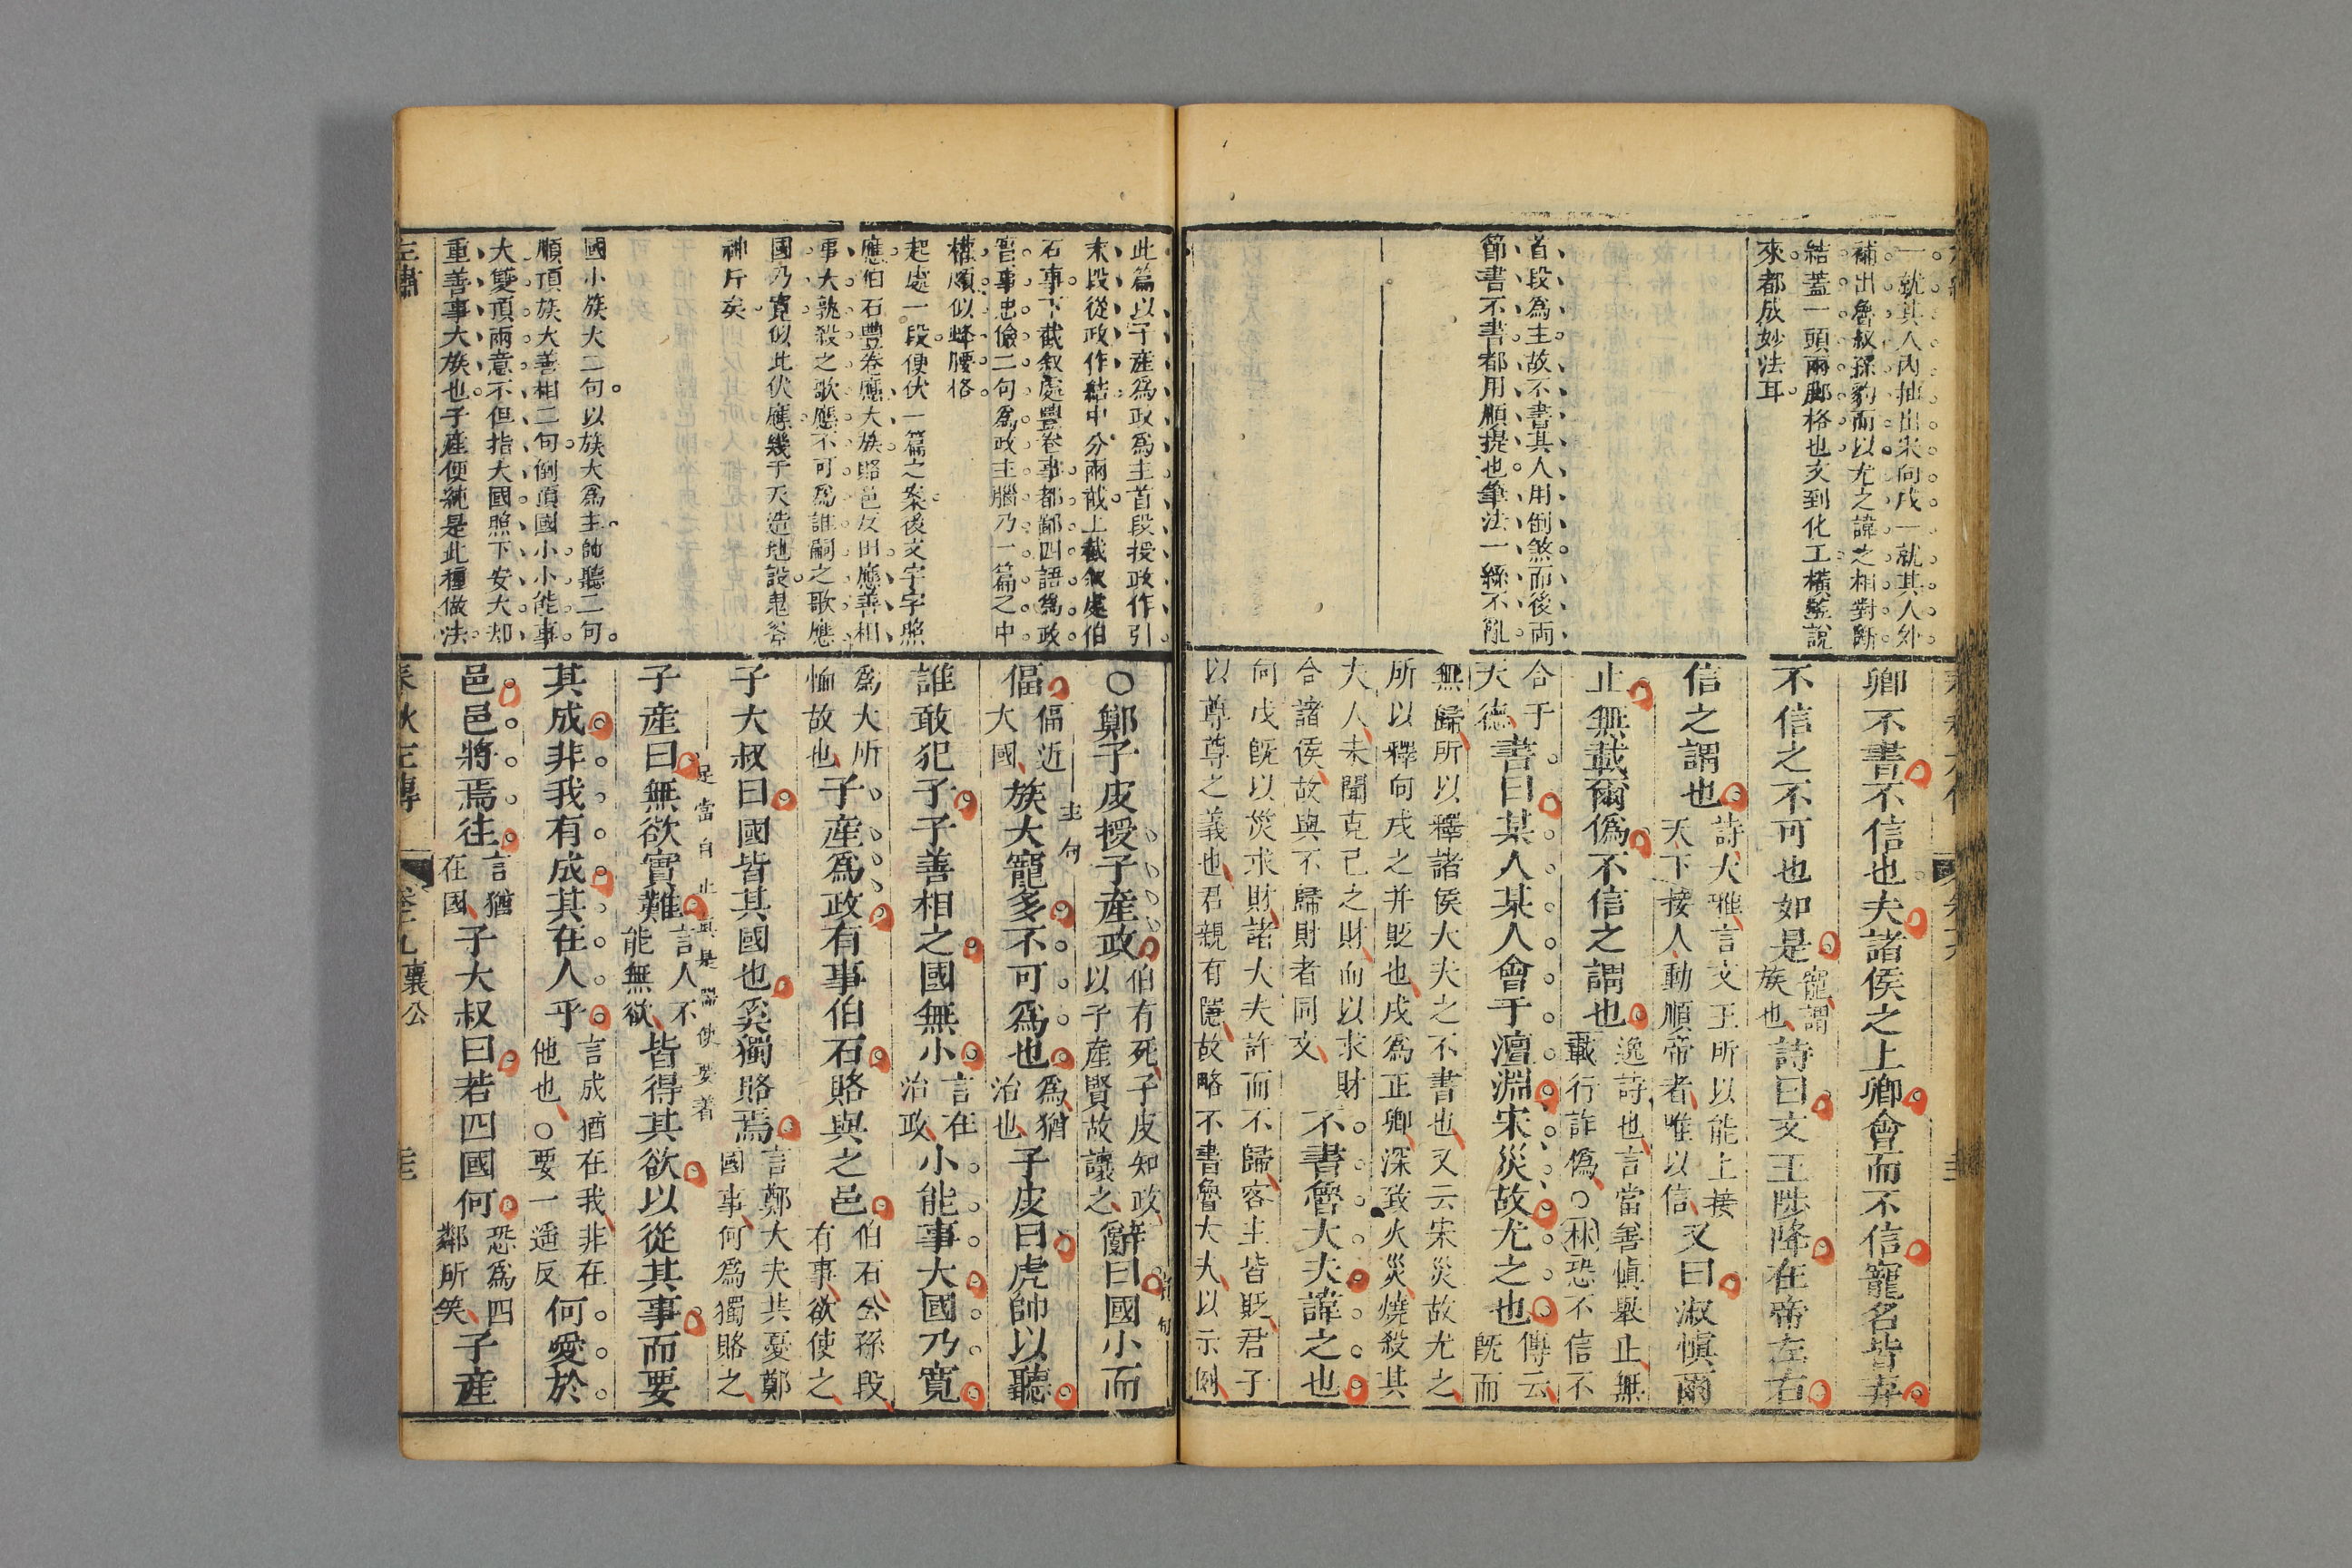 一就其人內抽出宋向戌一就其人外
補出魯叔孫豹而以尤之諱之相對斷
結蓋一頭兩脚格也文到化工橫豎說
來都成妙法耳
首段爲主故不書其人用倒煞而後兩
節書不書都用順提也筆法一絲不亂
卿不書不信也夫諸侯之上卿會而不信寵名皆弃
不信之不可也如是
寵謂
族也
詩曰文王陟降在帝左右
信之謂也
詩大雅言文王所以能上接
天下接人動順帝者唯以信
又曰淑慎爾
止無載爾僞不信之謂也
逸詩也言當善慎舉止無
載行詐僞○林恐不信不
合于
天德
書曰某人某人會于澶淵宋災故尤之也
傳云
旣而
無歸所以釋諸侯大夫之不書也又云宋災故尤之
所以釋向戌之并貶也戌爲正卿深致火災燒殺其
大人未聞克己之財而以求財
合諸侯故與不歸財者同文
不書魯大夫諱之也
向戌旣以災求財諸大夫許而不歸客主皆貶君子
以尊尊之義也君親有隱故略不書魯大夫以示例
此篇以子產爲政爲主首段授政作引
末段從政作結中分兩截上截敘處伯
石事下截敘處豐卷事都鄙四語爲政
晉事忠儉二句爲政主腦乃一篇之中
權頗似蜂腰格
起處一段便伏一篇之案後文字字照
應伯石豐卷應大族賂邑反田應善相
事大孰殺之歌應不可爲誰嗣之歌應
國乃寬似此伏應幾于天造地設鬼斧
神斤矣
國小族大二句以族大爲主帥聽二句
順頂族大善相二句倒頂國小小能事
大雙頂兩意不但指大國照下安大却
重善事大族也子產便純是此種做法
左繡
○鄭子皮授子產政
伯有死子皮知政
以子產賢故讓之
辭曰國小而
偪
偪近
大國
族大寵多不可爲也
主句
爲猶
治也
子皮曰虎帥以聽
誰敢犯子子善相之國無小
言在
治政
小能事大國乃寬
爲大所
恤故也
子產爲政有事伯石賂與之邑
伯石公孫段
有事欲使之
子大叔曰國皆其國也奚獨賂焉
言鄭大夫共憂鄭
國事何爲獨賂之
子產曰無欲實難
言人不
能無欲
皆得其欲以從其事而要
其成非我有成其在人乎
言成猶在我非在
他也○要一遥反
何愛於
邑邑將焉往
言猶
在國
子大叔曰若四國何
恐爲四
鄰所笑
子產
春秋左傳
襄公